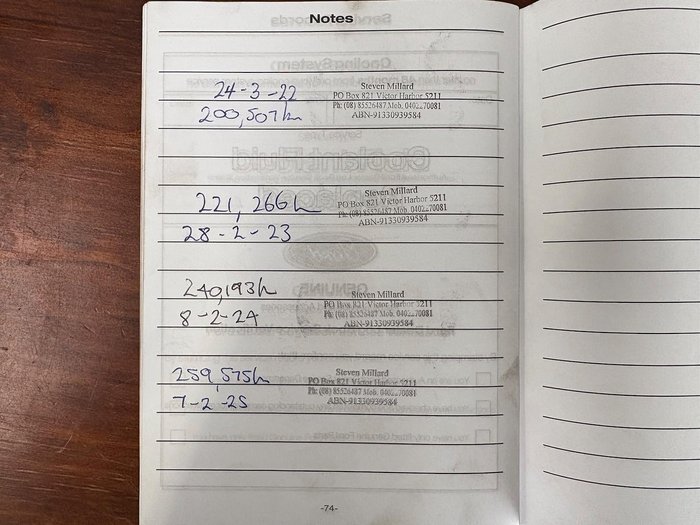 Notes
24-3-22
200,507km
Steven Millard
PO Box 821 Victor Harbor 5211
Ph: (08) 85526487 Mob. 0402 70081
ABN-91330939584
221,266km
28-2-23
Steven Millard
PO Box 821 Victor Harbor 5211
Ph: (08) 85526487 Mob. 0402 70081
ABN-91330939584
240,193km
8-2-24
Steven Millard
PO Box 821 Victor Harbor 5211
Ph: (08) 85526487 Mob. 0402 70081
ABN-91330939584
259,575km
7-2-25
Steven Millard
PO Box 821 Victor Harbor 5211
Ph: (08) 85526487 Mob. 0402 70081
ABN-91330939584
-74-